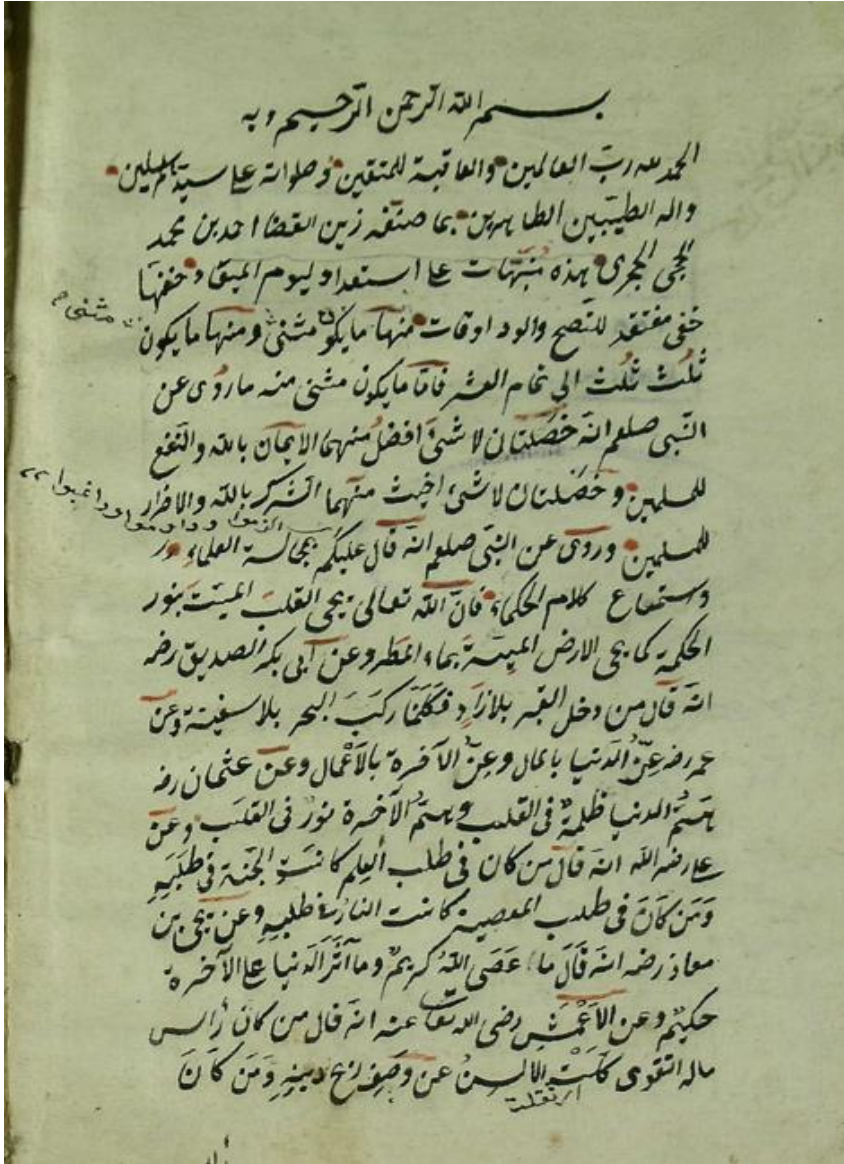 بسم الله الرحمن الرحيم وبه
الحمد لله رب العالمين والعاقبة للمتقين وصلواته على سيد المرسلين
واله الطيبين الطاهرين بما صنفه زين القضا احمد بن محمد
الحجى الحجرى هذه منبهات على استعداد ليوم الميعاد
خفى مفتقد للنصح والوداوقات منها ما يكون مثنى ومنها ما يكون
مثنى
ثُلُث ثُلُث الى تمام العشر فامّا ما يكون مثنى منه ما روى عن
النّبى صلعم انّه خَصْلَتان لا شئ افضلُ منهما الايمان بالله والنفع
للمسلمين وخَصْلتان لا شئ اخبث منهما الشرك بالله والاضرار
للمسلمين وروى عن النبى صلعم انّه قال عليكم بمجالسة العلماء
الزموا وداوموا وراغبوا
واستماع كلام الحكماء فانّ الله تعالى يحيى القلبَ الميّتَ بنور
الحكمة كما يحيى الارض الميتة بماء المطر وعن ابى بكر الصديق رضه
انّه قال من دخل القبر بلا زادٍ فكَاَنّما ركبَ البحر بلا سفينة وعن
عمر رضه عِزّ الدنيا بالمال وعِزّ الآخرة بالاَعْمال وعن عثمان رضه
همّ الدنيا ظلمةٌ فى القلب وهمّ الآخرة نورٌ فى القلب وعن
على رضه الله انّه قال من كان فى طلب العِلم كانت الجنة فى طلَبِهِ
وَمَن كانَ فى طلب المعصية كانت النار فى طلبهِ وعن يحيى بن
معاذ رضه انّه قَالَ ما عَصَى اللهَ كريمٌ وما آثَرَ الدنيا على الآخرة
حكيمٌ وعن الاَعْمَشِ رضى الله تعا عنه انّه قال من كان رأس
ماله التقوى كَلّتْ الالسنُ عن وَصْفِ ربح دينهِ وَمَن كَانَ
اى ثقلت